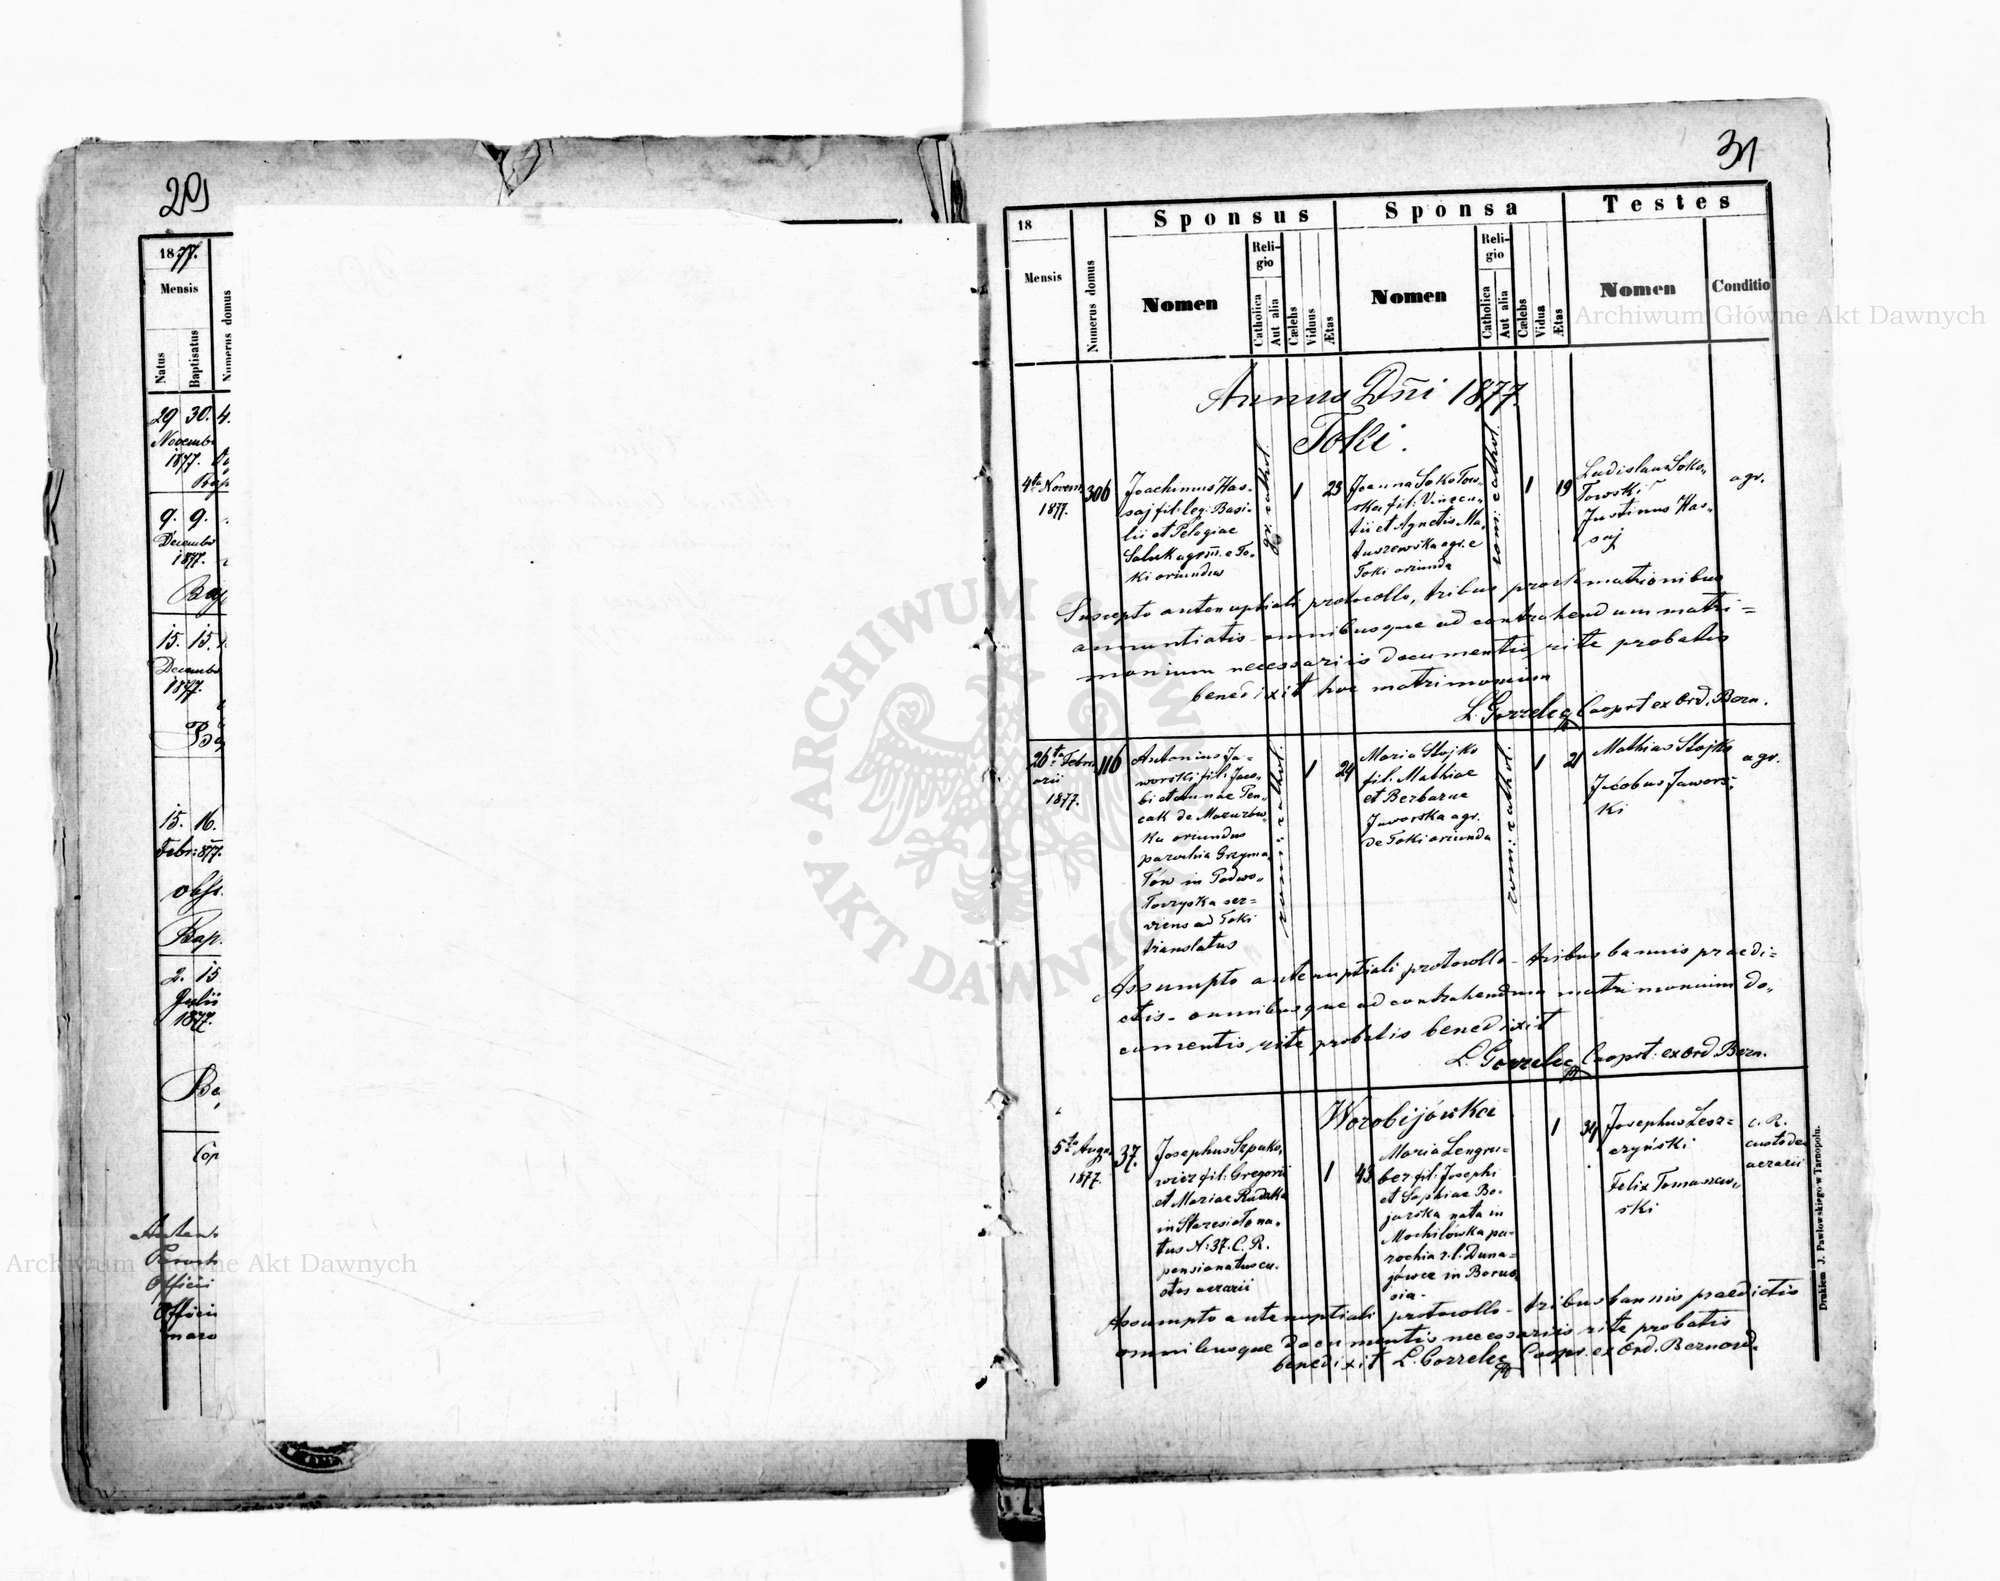 29
1877.
Mensis
Natus
Baptisatus
Numerus domus
29 30. 4.
Novemb
1877.
Bap
9. 9.
Decembr
1877.
Bap
15. 15.
Decembr
1877.
Ba
15. 16.
Febr: 877.
obst.
Bap.
2. 15
Julii
1877.
Ba
Cop
Officii
Officii
31
18
Mensis
Numerus domus
Sponsus
Nomen
Religio
Catholica
Aut alia
Cælebs
Viduus
Ætas
Sponsa
Nomen
Religio
Catholica
Aut alia
Cælebs
Vidua
Ætas
Testes
Nomen
Conditio
Annus Dñi 1877.
Toki.
4ta Novem.
1877.
306
Joachimus Has-
saj fil: leg: Basi-
lii et Pelagiae
Saluk agrm. e To-
ki oriundus
gr. cathol.
1
23
Joanna Sokołow-
ska fil: Vincen-
tii et Agnetis Ma-
tuszewska agr. e
Toki oriunda
rom: cathol.
1
19
Ladislaus Soko-
łowski
Justinus Has-
saj
agr.
Suscepto antenuptiali protocollo, tribus proclamationibus
annuntiatis omnibusque ad contrahendum matri=
monium necessariis documentis rite probatis
benedixit hoc matrimonium
L. Gorzelec Cooprt ex Ord. Bern.
26ta Febru-
arii
1877.
116
Antonius Ja-
worski fil: Jaco-
bi et Annae Pen-
cak de Mazurów-
ka oriundus
parochia Grzyma-
łów in Podwo-
łoczyska ser-
viens ad Toki
translatus
rom: cathol.
1
24
Maria Stojko
fil: Mathiae
et Barbarae
Jaworska agr.
de Toki oriunda
rom: cathol.
1
21
Mathias Stojko
Jacobus Jawors-
ki
agr.
Assumpto antenuptiali protocollo - tribus bannis praedi=
ctis - omnibusque ad contrahendum matrimonium do-
cumentis rite probatis benedixit
L. Gorzelec Cooprt: ex Ord. Bern.
Worobijówka
5ta Augu.
1877.
37.
Josephus Szpako-
wicz fil: Gregorii
et Mariae Rudzka
in Staresioło na-
tus N: 37. C. R.
pensionatus cu-
stos aerarii
1
43
Maria Lengru-
ber fil: Josephi
et Sophiae Bo-
jarska nata in
Mochilówka pa-
rochia r. l. Duna-
jówce in Borus-
sia.
1
34
Josephus Lesz-
czyński
Felix Tomaszew-
ski
c. R.
custodes
aerarii
Assumpto antenuptiali protocollo - tribus bannis praedictis
omnibusque documentis necessariis rite probatis
benedixit L. Gorzelec Coopr. ex Ord. Bernard.
Drukiem J. Pawłowskiego w Tarnopolu.
Archiwum Główne Akt Dawnych
Archiwum Główne Akt Dawnych
ARCHIWUM GŁÓWNE AKT DAWNYCH